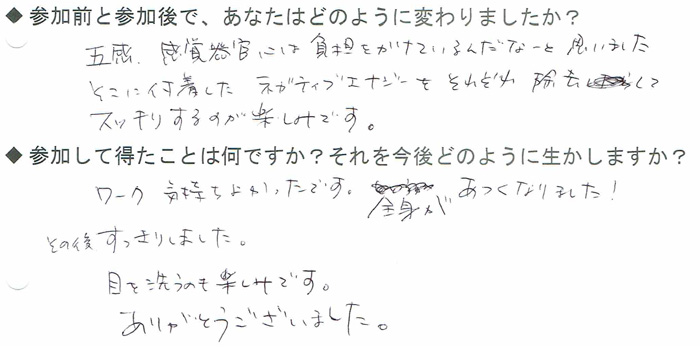 ◆ 参加前と参加後で、あなたはどのように変わりましたか？
五感、感覚器官には負担をかけているんだなーと思いました
そこに付着した ネガティブエナジーを それぞれ 除去して
スッキリするのが楽しみです。
◆ 参加して得たことは何ですか？それを今後どのように生かしますか？
ワーク 気持ちよかったです。 全身が あつくなりました！
その後 すっきりしました。
目を洗うのも楽しみです。
ありがとうございました。